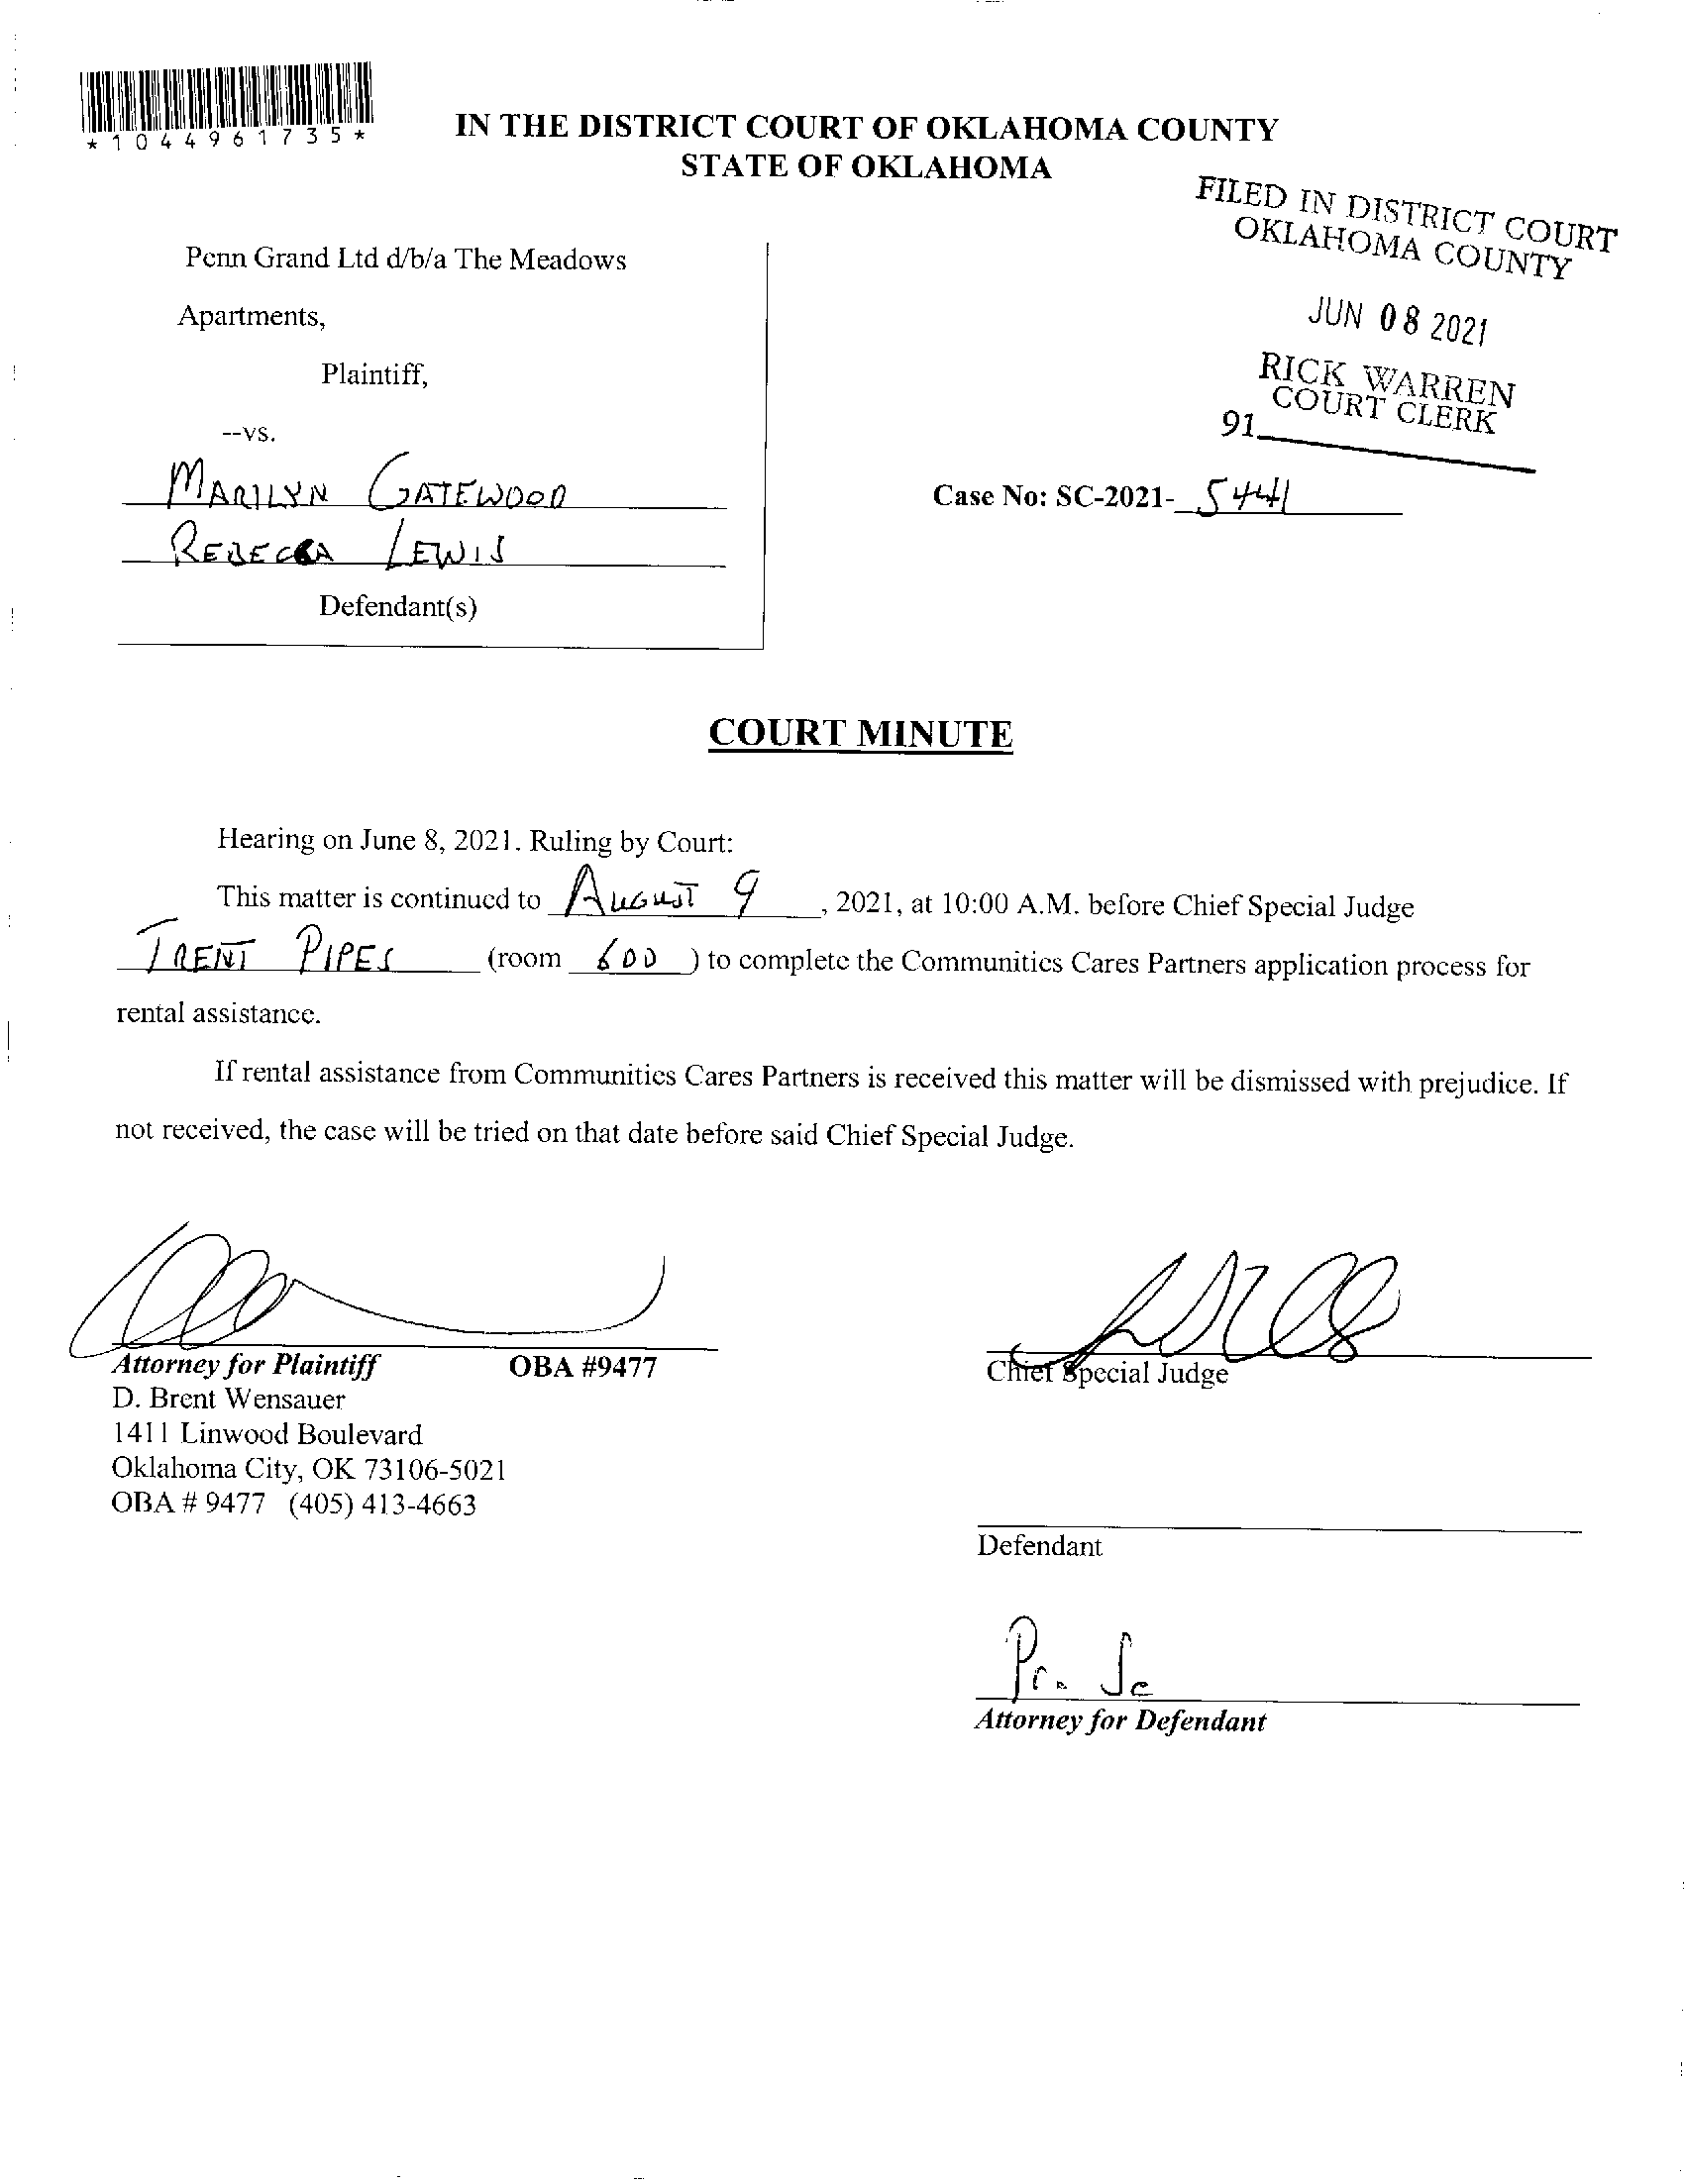 *1044961735*
IN THE DISTRICT COURT OF OKLAHOMA COUNTY
STATE OF OKLAHOMA
FILED IN DISTRICT COURT
OKLAHOMA COUNTY
JUN 08 2021
RICK WARREN
COURT CLERK
91
Penn Grand Ltd d/b/a The Meadows
Apartments,
Plaintiff,
--vs.
MARILYN GATEWOOD
Case No: SC-2021- 5441
REBECCA LEWIS
Defendant(s)
COURT MINUTE
Hearing on June 8, 2021. Ruling by Court:
This matter is continued to AUGUST 9, 2021, at 10:00 A.M. before Chief Special Judge
TRENT PIPES (room 600) to complete the Communities Cares Partners application process for
rental assistance.
If rental assistance from Communities Cares Partners is received this matter will be dismissed with prejudice. If
not received, the case will be tried on that date before said Chief Special Judge.
Attorney for Plaintiff OBA #9477
D. Brent Wensauer
1411 Linwood Boulevard
Oklahoma City, OK 73106-5021
OBA # 9477 (405) 413-4663
Chief Special Judge
Defendant
Attorney for Defendant